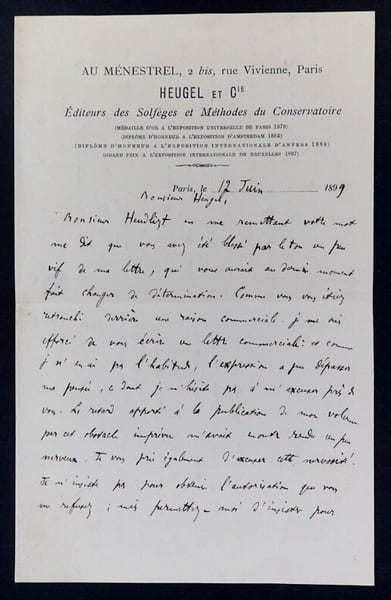 AU MÉNESTREL, 2 bis, rue Vivienne, Paris
HEUGEL ET CIE
Éditeurs des Solfèges et Méthodes du Conservatoire
(MÉDAILLE D'OR A L'EXPOSITION UNIVERSELLE DE PARIS 1878)
(DIPLÔME D'HONNEUR A L'EXPOSITION D'AMSTERDAM 1883)
(DIPLÔME D'HONNEUR A L'EXPOSITION INTERNATIONALE D'ANVERS 1885)
(GRAND PRIX A L'EXPOSITION INTERNATIONALE DE BRUXELLES 1897)
Paris, le 12 Juin 1899
Monsieur Heugel,
Monsieur en me remettant votre mot
me dit que vous avez été blessé par le ton un peu
vif de ma lettre, qui vous aurait au dernier moment
fait changer de détermination. Comme vous vous étiez
retranché derrière une raison commerciale je me suis
efforcé de vous écrire une lettre commerciale : et comme
je n'en ai pas l'habitude, l'expression a pu dépasser
ma pensée, ce dont je n'hésite pas à m'excuser près de
vous. Le retard apporté à la publication de mon volume
par cet obstacle imprévu m'avait rendu un peu
nerveux. Je vous prie également d'excuser cette nervosité.
Je n'insiste pas pour obtenir l'autorisation que vous
me refusez ; mais permettez-moi d'insister pour